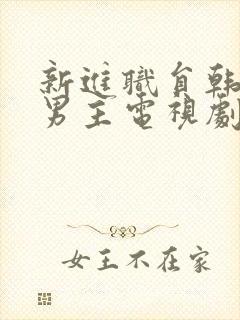 新進職員韓
男主電視劇
女王不在家